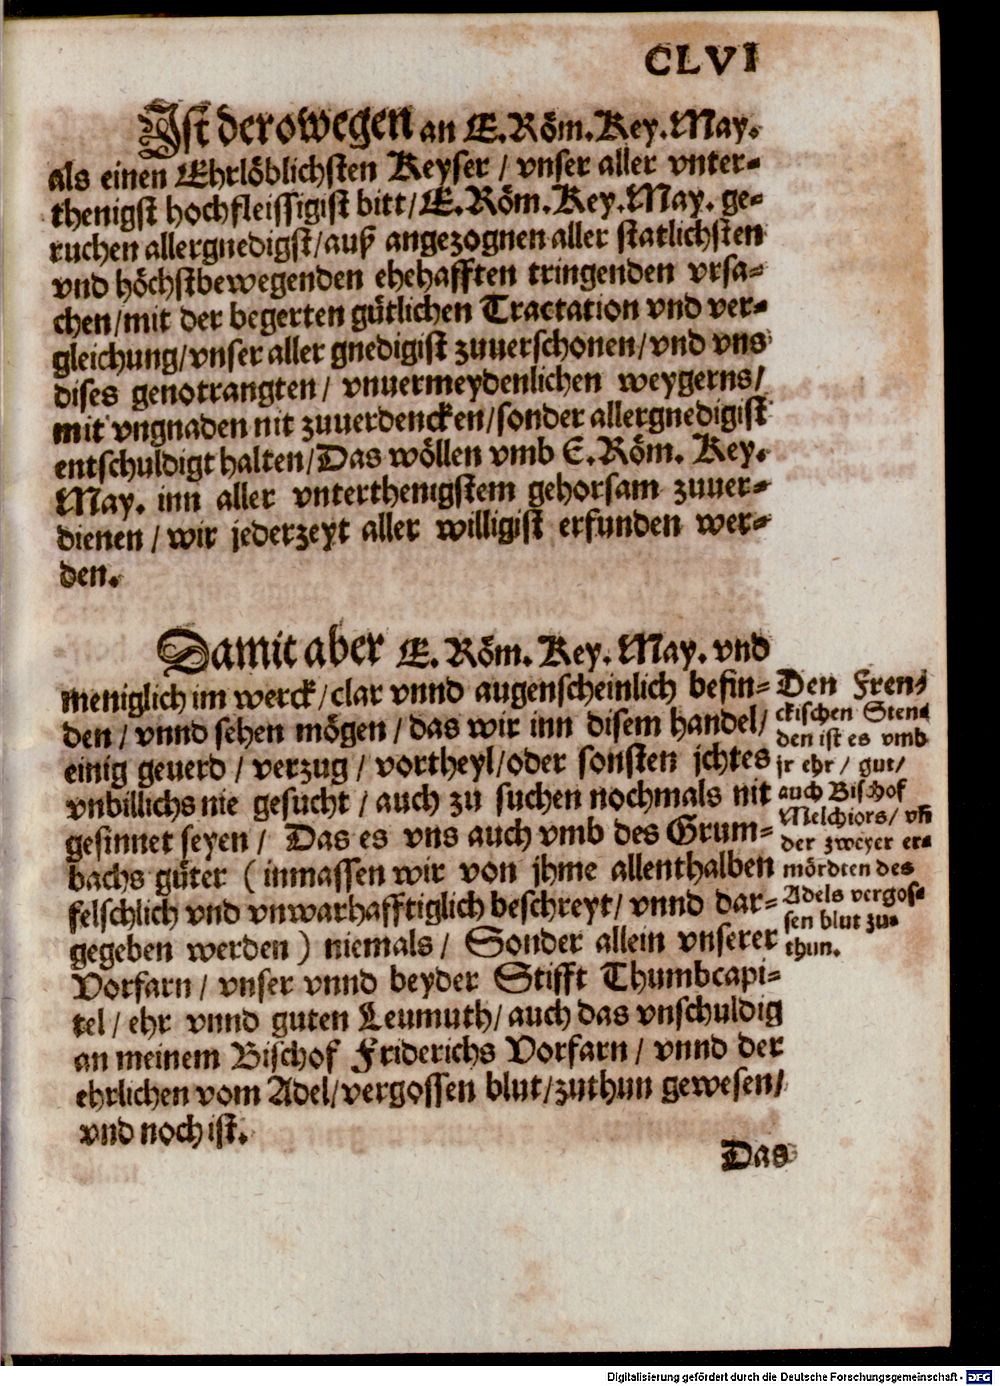 CLVI
Ist derowegen an E. Röm. Key. May.
als einen Ehrlöblichsten Keyser / vnser aller vnter-
thenigst hochfleissigist bitt / E. Röm. Key. May. ge-
ruchen allergnedigst / auß angezognen aller statlichsten
vnd höchstbewegenden ehehafften tringenden vrsa-
chen / mit der begerten gütlichen Tractation vnd ver-
gleichung / vnser aller gnedigist zuuerschonen / vnd vns
dises genotrangten / vnuermeydenlichen weygerns /
mit vngnaden nit zuuerdencken / sonder allergnedigist
entschuldigt halten / Das wöllen vmb E. Röm. Key.
May. inn aller vnterthenigstem gehorsam zuuer-
dienen / wir jederzeyt aller willigist erfunden wer-
den.
Damit aber E. Röm. Key. May. vnd
meniglich im werck / clar vnnd augenscheinlich befin-
den / vnnd sehen mögen / das wir inn disem handel /
einig geuerd / verzug / vortheyl / oder sonsten jchtes
vnbillichs nie gesucht / auch zu suchen nochmals nit
gesinnet seyen / Das es vns auch vmb des Grum-
bachs güter (inmassen wir von jhme allenthalben
felschlich vnd vnwarhafftiglich beschreyt / vnnd dar-
gegeben werden) niemals / Sonder allein vnserer
Vorfarn / vnser vnnd beyder Stifft Thumbcapi-
tel / ehr vnnd guten Leumuth / auch das vnschuldig
an meinem Bischof Friderichs Vorfarn / vnnd der
ehrlichen vom Adel / vergossen blut / zuthun gewesen /
vnd noch ist.
Den Fren-
ckischen Sten-
den ist es vmb
jr ehr / gut /
auch Bischof
Melchiors / vñ
der zweyer er-
mördten des
Adels vergos-
sen blut zu-
thun.
Das
Digitalisierung gefördert durch die Deutsche Forschungsgemeinschaft - DFG